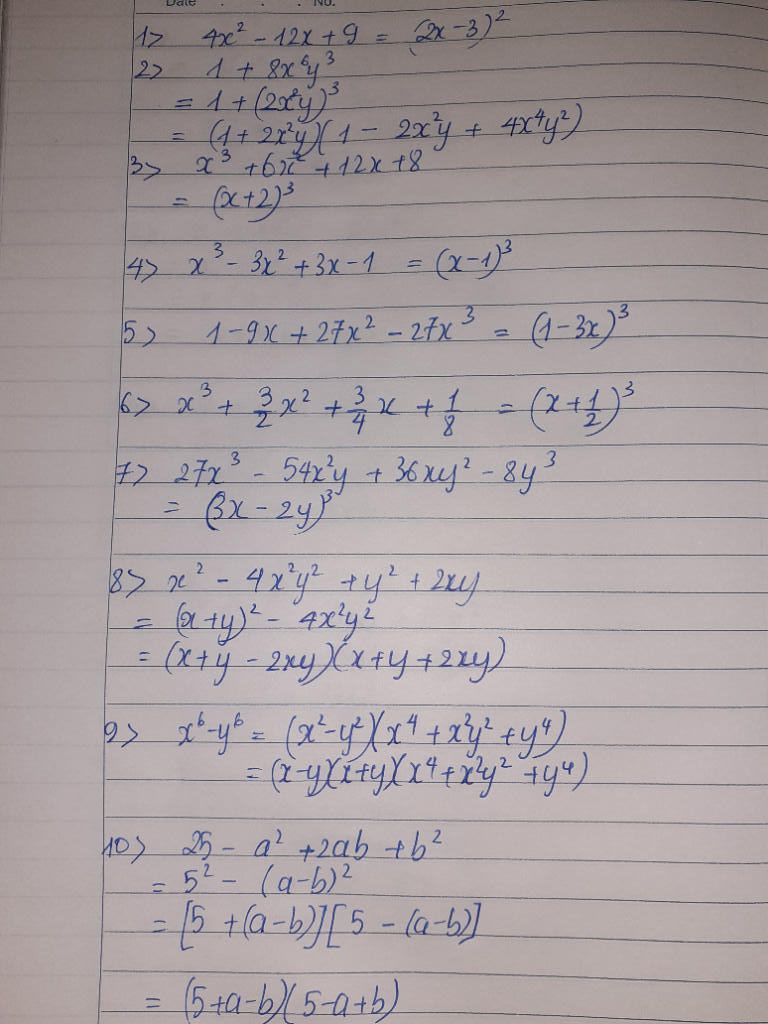 Date . . No.
1> 4x² - 12x + 9 = (2x - 3)²
2> 1 + 8x⁶y³
= 1 + (2x²y)³
= (1 + 2x²y)(1 - 2x²y + 4x⁴y²)
3> x³ + 6x² + 12x + 8
= (x+2)³
4> x³ - 3x² + 3x - 1 = (x-1)³
5> 1 - 9x + 27x² - 27x³ = (1 - 3x)³
6> x³ + 3/2 x² + 3/4 x + 1/8 = (x + 1/2)³
7> 27x³ - 54x²y + 36xy² - 8y³
= (3x - 2y)³
8> x² - 4x²y² + y² + 2xy
= (x+y)² - 4x²y²
= (x+y - 2xy)(x+y + 2xy)
9> x⁶ - y⁶ = (x² - y²)(x⁴ + x²y² + y⁴)
= (x-y)(x+y)(x⁴ + x²y² + y⁴)
10> 25 - a² + 2ab + b²
= 5² - (a-b)²
= [5 + (a-b)][5 - (a-b)]
= (5+a-b)(5-a+b)